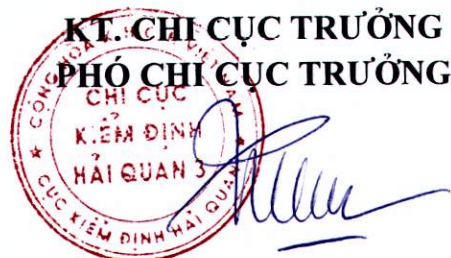 KT. CHI CỤC TRƯỞNG
PHÓ CHI CỤC TRƯỞNG
CHI CỤC
KIỂM ĐỊNH
HẢI QUAN 3
CỤC KIỂM ĐỊNH HẢI QUAN